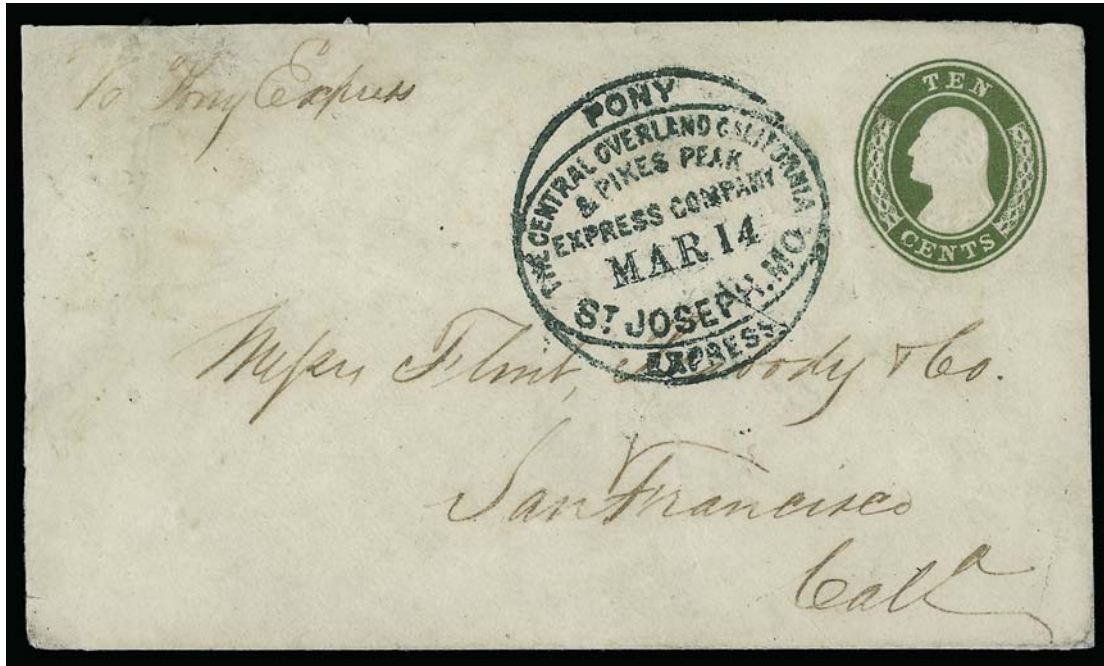 Pony Express
PONY
THE CENTRAL OVERLAND CALIFORNIA
& PIKES PEAK
EXPRESS COMPANY
MAR 14
ST JOSEPH. MO.
EXPRESS
TEN
CENTS
Messrs Flint, Peabody & Co.
San Francisco
Cala